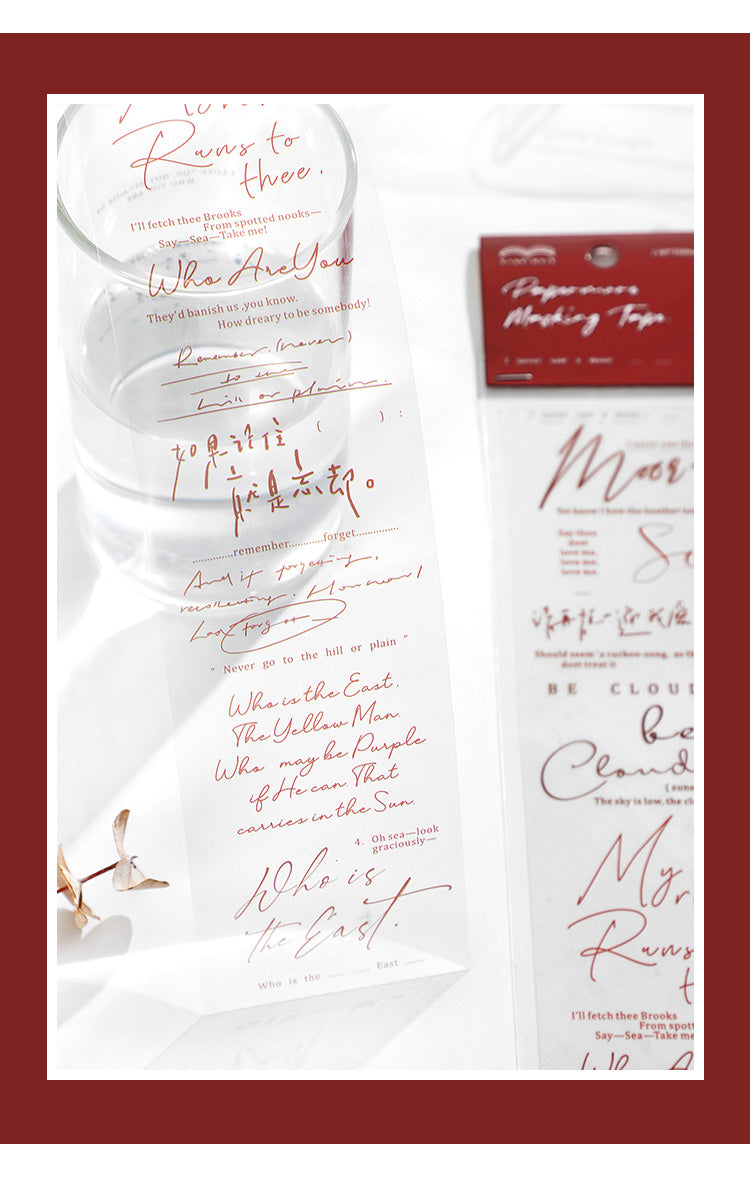 Runs to
thee.
I'll fetch thee Brooks
From spotted nooks—
Say—Sea—Take me!
Who Are You
They'd banish us ,you know.
How dreary to be somebody!
Remember. (never)
to me
hill or plain.
如果记住 ( ) :
就是忘却。
.............remember............forget..............
And if forgetting,
recollecting. How near I
Had forgot
" Never go to the hill or plain "
Who is the East.
The Yellow Man.
Who may be Purple
if He can. That
carries in the Sun.
4. Oh sea—look
graciously—
Who is
the East.
Who is the ...... ...... East .......
Papermore
Masking Tape.
I never saw a moor
Moor
Yet know I how the heather
Say thou
dost
love me,
love me,
love me,
Should seem 'a cuckoo-song, as
dost treat it
BE CLOU
be
Cloud
The sky is low, the cl
My
Runs
I'll fetch thee Brooks
From spott
Say—Sea—Take me
Who A